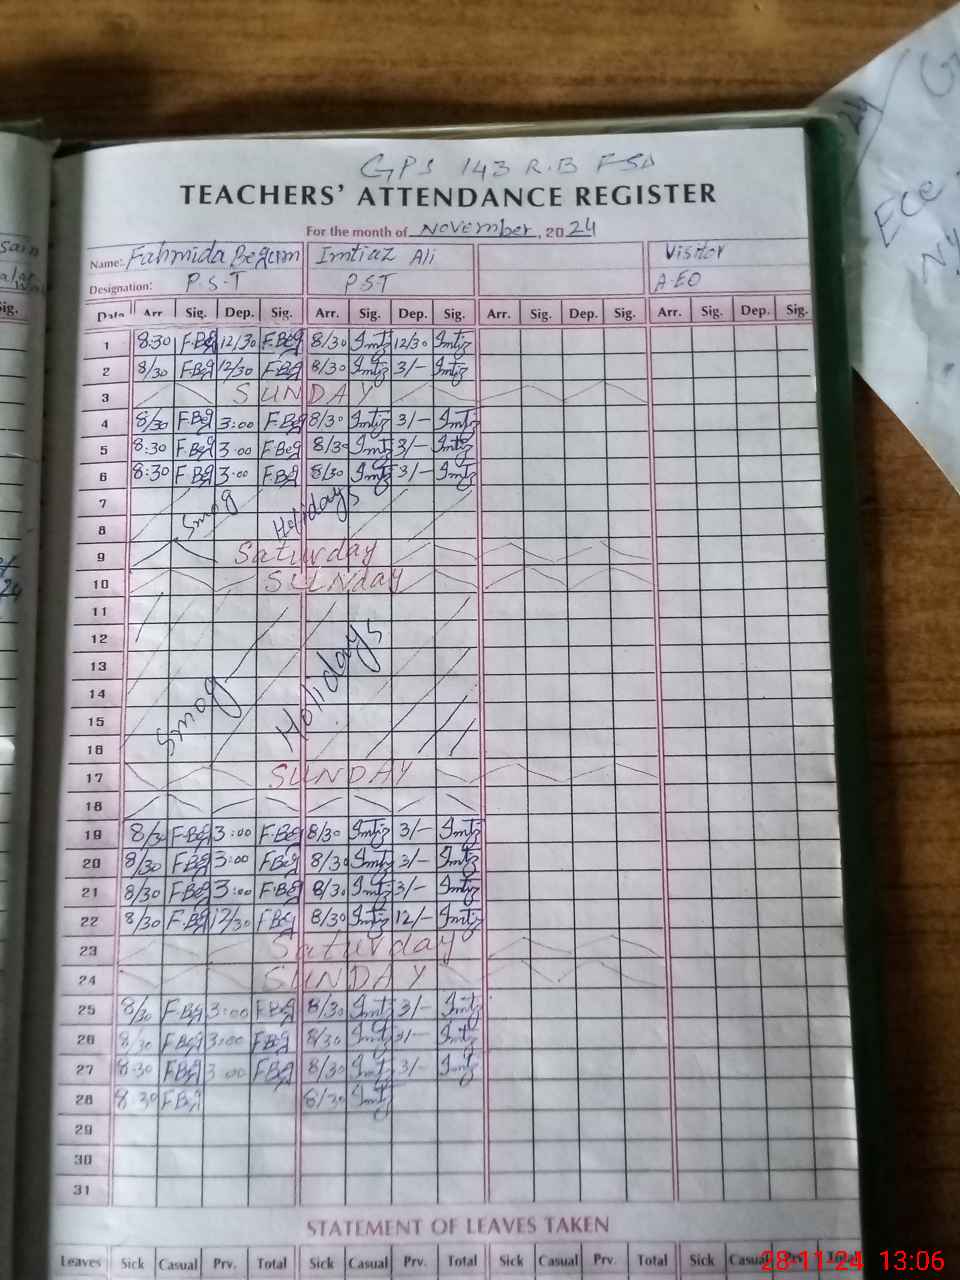 GPS 143 R.B FSD
TEACHERS' ATTENDANCE REGISTER
For the month of November, 2024
Name: Fahmida Begum Imtiaz Ali Visitor
Designation: P.S.T PST A.EO
Date Arr. Sig. Dep. Sig. Arr. Sig. Dep. Sig. Arr. Sig. Dep. Sig. Arr. Sig. Dep. Sig.
1 8:30 F.Beg 12/30 F.Beg 8/30 Imtz 12/30 Imtz
2 8/30 FBeg 12/30 FBeg 8/30 Imtz 3/- Imtz
3 SUNDAY
4 8/30 FBeg 3:00 F.Beg 8/30 Imtz 3/- Imtz
5 8:30 F.Beg 3:00 FBeg 8/30 Imtz 3/- Imtz
6 8:30 FBeg 3:00 F.Beg 8/30 Imtz 3/- Imtz
7
Smog Holidays
8
9 Saturday
10 SUNday
11
12
13
14
Smog Holidays
15
16
17 SUNDAY
18
19 8/30 F.Beg 3:00 F.Beg 8/30 Imtz 3/- Imtz
20 8/30 FBeg 3:00 FBeg 8/30 Imtz 3/- Imtz
21 8/30 FBeg 3:00 F.Beg 8/30 Imtz 3/- Imtz
22 8/30 F.Beg 12/30 FBeg 8/30 Imtz 12/- Imtz
23 Saturday
24 SUNDAY
25 8/30 F.Beg 3:00 FBeg 8/30 Imtz 3/- Imtz
26 8/30 FBeg 3:00 FBeg 8/30 Imtz 3/- Imtz
27 8:30 FBeg 3:00 FBeg 8/30 Imtz 3/- Imtz
28 8:30 FBeg 8/30 Imtz
29
30
31
STATEMENT OF LEAVES TAKEN
Leaves Sick Casual Prv. Total Sick Casual Prv. Total Sick Casual Prv. Total Sick Casual Prv. Total
28-11-24 13:06
Sig.
ECE